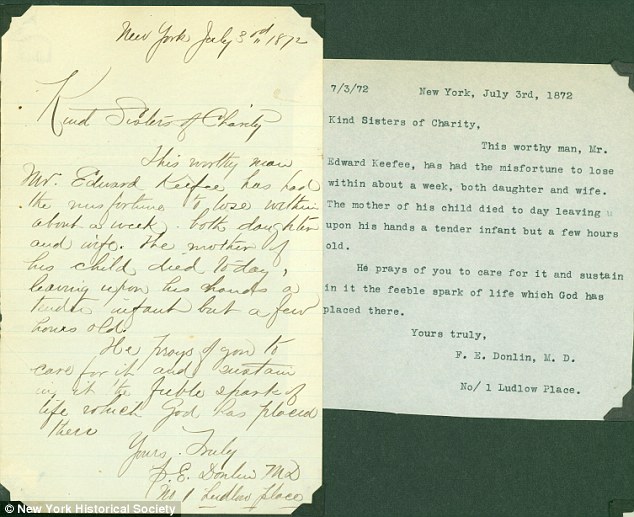 New York July 3rd 1872
Kind Sisters of Charity
This worthy man
Mr. Edward Keefee has had
the misfortune to lose within
about a week both daughter
and wife. The mother of
his child died today,
leaving upon his hands a
tender infant but a few
hours old.
He prays of you to
care for it and sustain
in it the feeble spark of
life which God has placed
there
Yours Truly
F. E. Donlin MD
No. 1 Ludlow place
7/3/72 New York, July 3rd, 1872
Kind Sisters of Charity,
This worthy man, Mr.
Edward Keefee, has had the misfortune to lose
within about a week, both daughter and wife.
The mother of his child died to day leaving u
upon his hands a tender infant but a few hours
old.
He prays of you to care for it and sustain
in it the feeble spark of life which God has
placed there.
Yours truly,
F. E. Donlin, M. D.
No/ 1 Ludlow Place.
© New York Historical Society